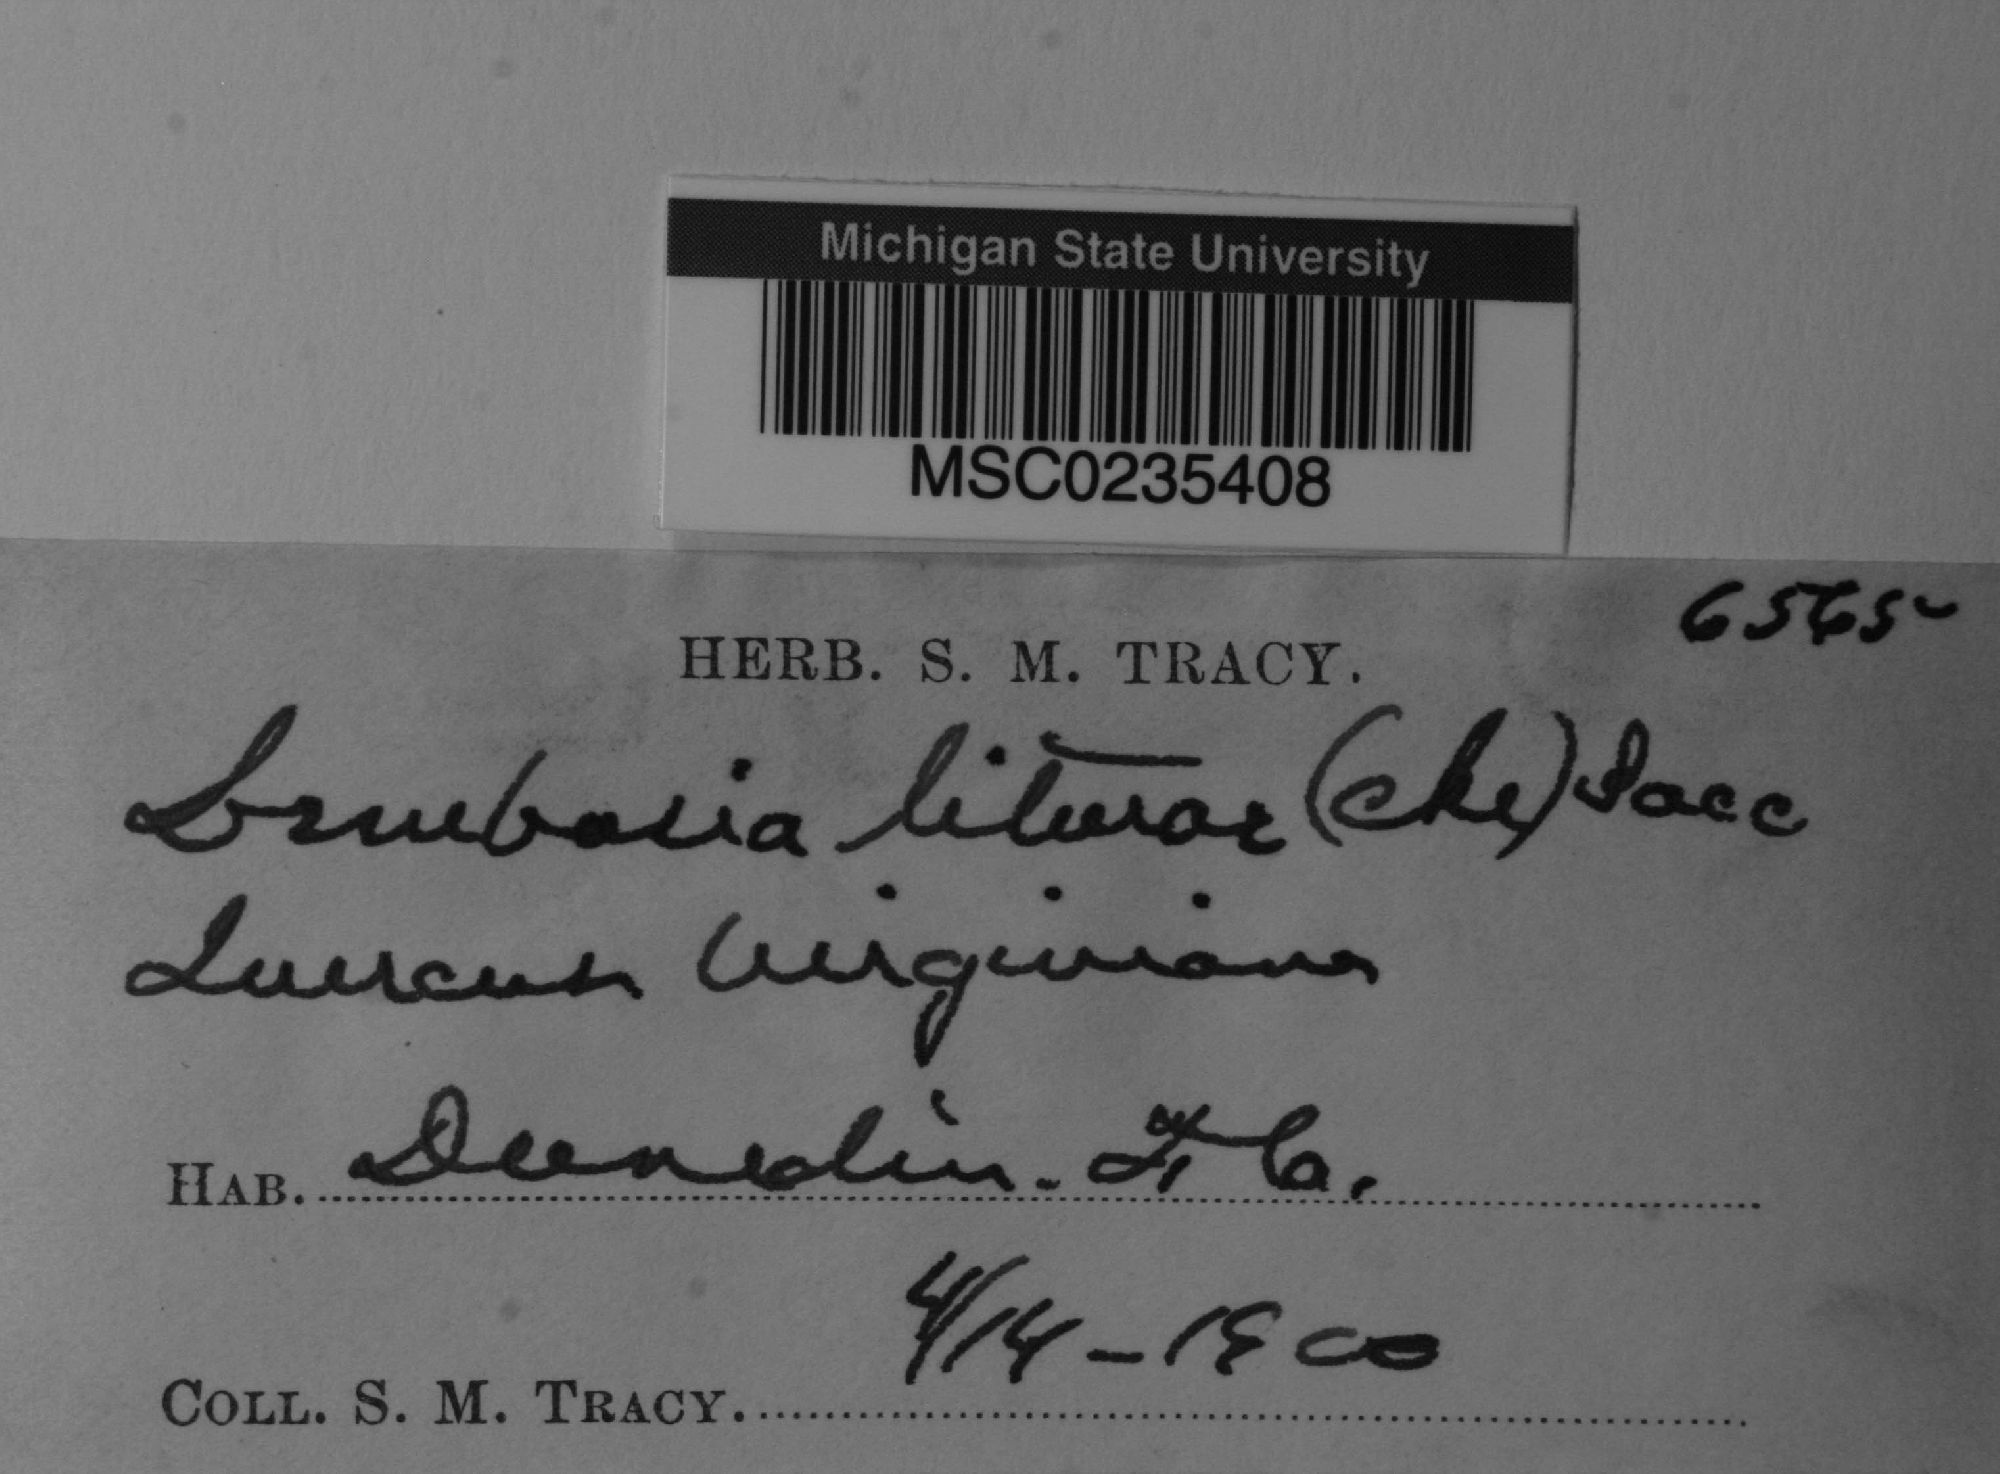 Michigan State University
MSC0235408
6565
HERB. S. M. TRACY.
Lembosia liturae (Cke) Sacc
Quercus Virginiana
HAB. Dunedin. Fla.
4/14-1900
COLL. S. M. TRACY.